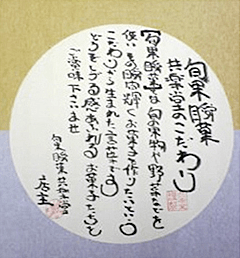 旬果瞬菓
共楽堂のこだわり
旬果瞬菓は旬の果物や野菜などを
使い、その瞬間輝くお菓子を作りたいという
こだわりから生まれた言葉です。
どうぞ、季節感あふれるお菓子たちを
ご賞味下さいませ
旬果瞬菓 共楽堂
店主